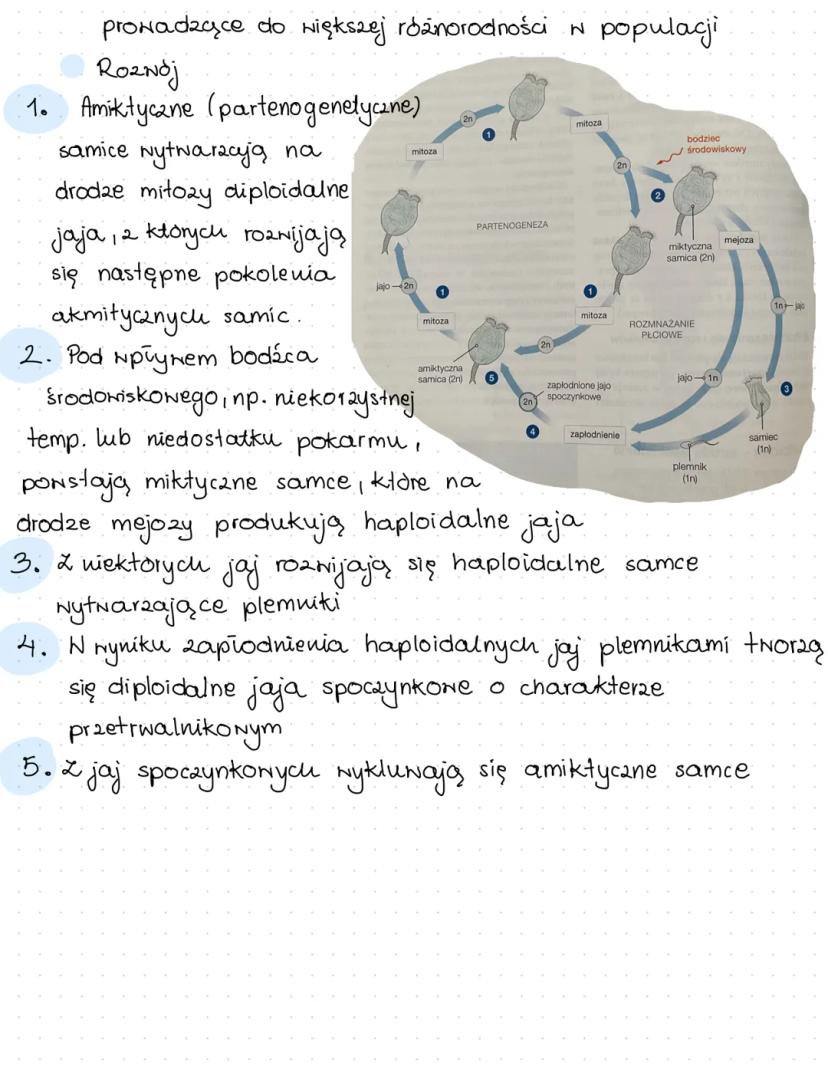 prowadzące do większej różnorodności w populacji
Rozwój
1. Amiktyczne (partenogenetyczne)
samice wytwarzają na
drodze mitozy diploidalne
jaja, z których rozwijają
się następne pokolenia
akmitycznych samic.
2. Pod wpływem bodźca
środowiskowego, np. niekorzystnej
temp. lub niedostatku pokarmu,
powstają miktyczne samce, które na
drodze mejozy produkują haploidalne jaja
3. Z niektórych jaj rozwijają się haploidalne samce
wytwarzające plemniki
4. W wyniku zapłodnienia haploidalnych jaj plemnikami tworzą
się diploidalne jaja spoczynkowe o charakterze
przetrwalnikowym
5. Z jaj spoczynkowych wykluwają się amiktyczne samce
2n
1
mitoza
mitoza
bodziec
środowiskowy
2n
2
PARTENOGENEZA
miktyczna
samica (2n)
mejoza
jajo 2n
1
1
1n jajo
mitoza
mitoza
ROZMNAŻANIE
PŁCIOWE
2n
amiktyczna
samica (2n)
5
zapłodnione jajo
spoczynkowe
2n
jajo 1n
3
4
zapłodnienie
samiec
(1n)
plemnik
(1n)